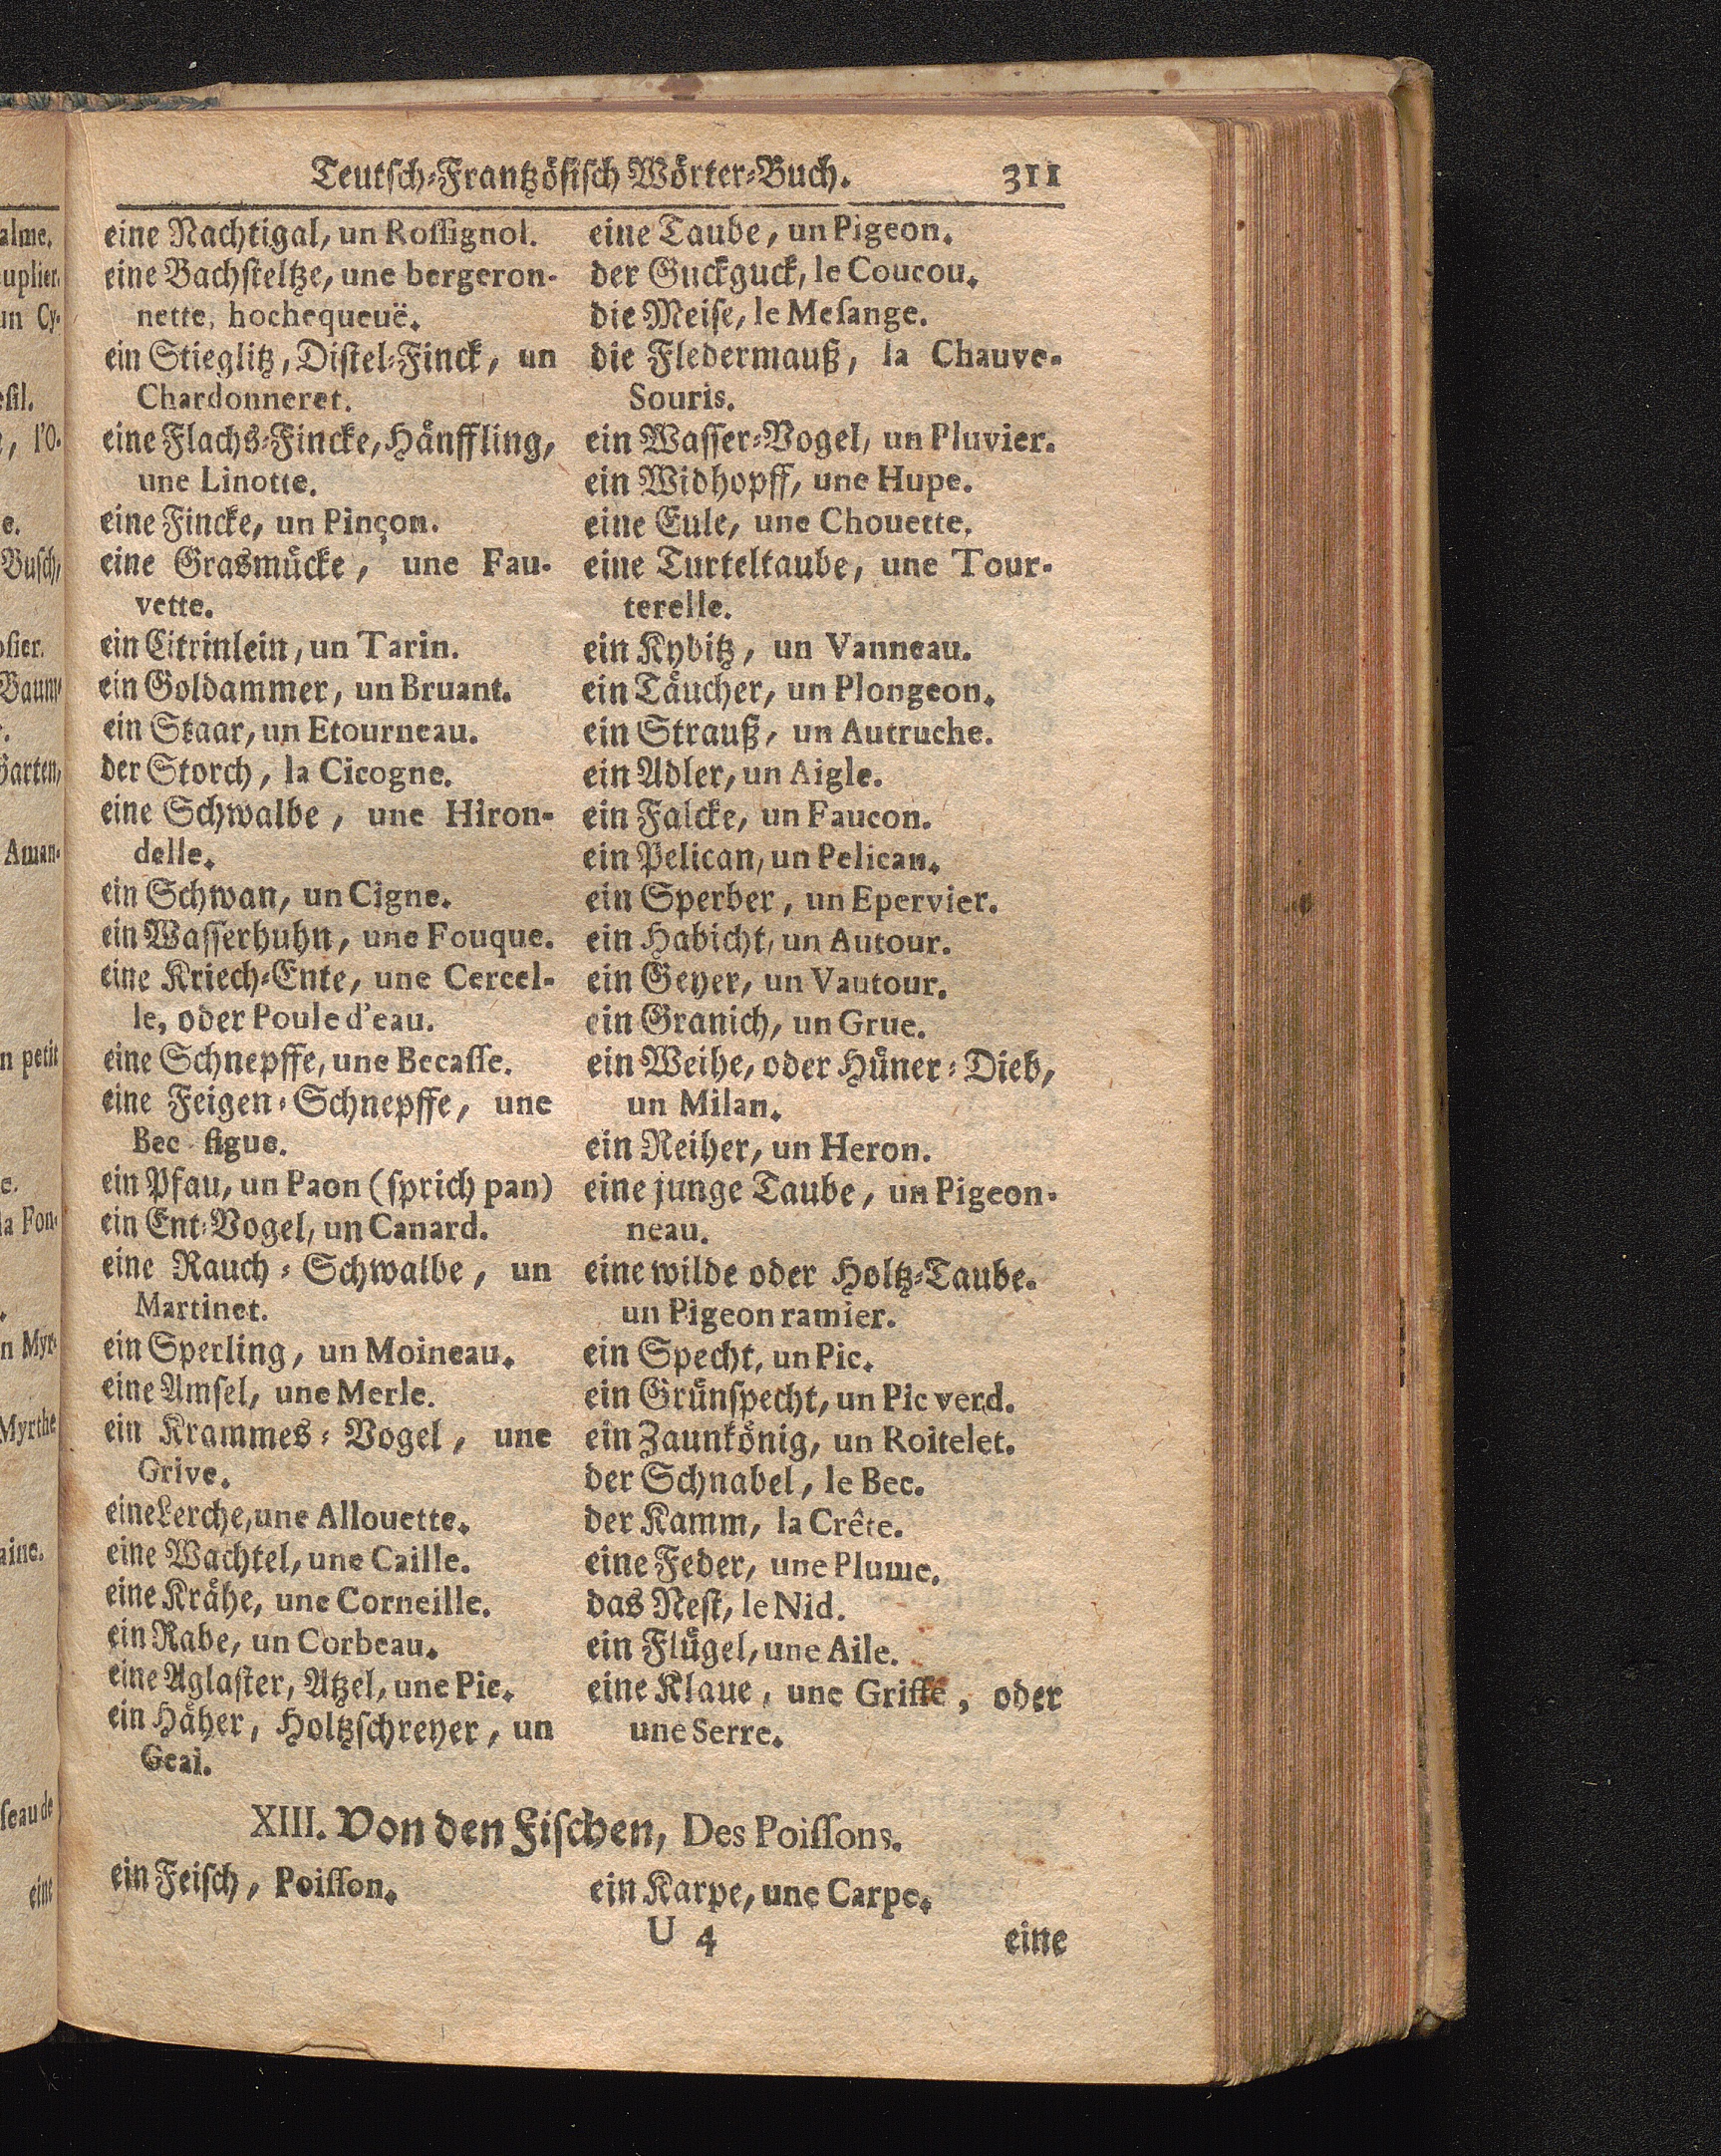 Teutsch-Frantzösisch Wörter-Buch. 311
eine Nachtigal, un Rossignol.
eine Bachsteltze, une bergeron-
nette, hochequeuë.
ein Stieglitz, Distel-Finck, un
Chardonneret.
eine Flachs-Fincke, Hänffling,
une Linotte.
eine Fincke, un Pinçon.
eine Grasmücke, une Fau-
vette.
ein Citrinlein, un Tarin.
ein Goldammer, un Bruant.
ein Staar, un Etourneau.
der Storch, la Cicogne.
eine Schwalbe, une Hiron-
delle.
ein Schwan, un Cigne.
ein Wasserhuhn, une Fouque.
eine Kriech-Ente, une Cercel-
le, oder Poule d'eau.
eine Schnepffe, une Becasse.
eine Feigen-Schnepffe, une
Bec-figue.
ein Pfau, un Paon (sprich pan)
ein Ent-Vogel, un Canard.
eine Rauch-Schwalbe, un
Martinet.
ein Sperling, un Moineau.
eine Amsel, une Merle.
ein Krammes-Vogel, une
Grive.
eine Lerche, une Allouette.
eine Wachtel, une Caille.
eine Krähe, une Corneille.
ein Rabe, un Corbeau.
eine Aglaster, Atzel, une Pie.
ein Häher, Holtzschreyer, un
Geai.
eine Taube, un Pigeon.
der Guckguck, le Coucou.
die Meise, le Mesange.
die Fledermauß, la Chauve-
Souris.
ein Wasser-Vogel, un Pluvier.
ein Widhopff, une Hupe.
eine Eule, une Chouette.
eine Turteltaube, une Tour-
terelle.
ein Kybitz, un Vanneau.
ein Täucher, un Plongeon.
ein Strauß, un Autruche.
ein Adler, un Aigle.
ein Falcke, un Faucon.
ein Pelican, un Pelican.
ein Sperber, un Epervier.
ein Habicht, un Autour.
ein Geyer, un Vautour.
ein Granich, un Grue.
ein Weihe, oder Hüner-Dieb,
un Milan.
ein Reiher, un Heron.
eine junge Taube, un Pigeon-
neau.
eine wilde oder Holtz-Taube.
un Pigeon ramier.
ein Specht, un Pic.
ein Grünspecht, un Pic verd.
ein Zaunkönig, un Roitelet.
der Schnabel, le Bec.
der Kamm, la Crête.
eine Feder, une Plume.
das Nest, le Nid.
ein Flügel, une Aile.
eine Klaue, une Griffe, oder
une Serre.
XIII. Von den Fischen, Des Poissons.
ein Feisch, Poisson.
ein Karpe, une Carpe.
U 4 eine